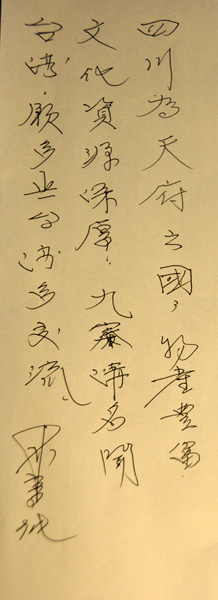 四川為天府之國，物產豐富
文化資源深厚，九寨溝名聞
台灣，願多與台灣多交流。